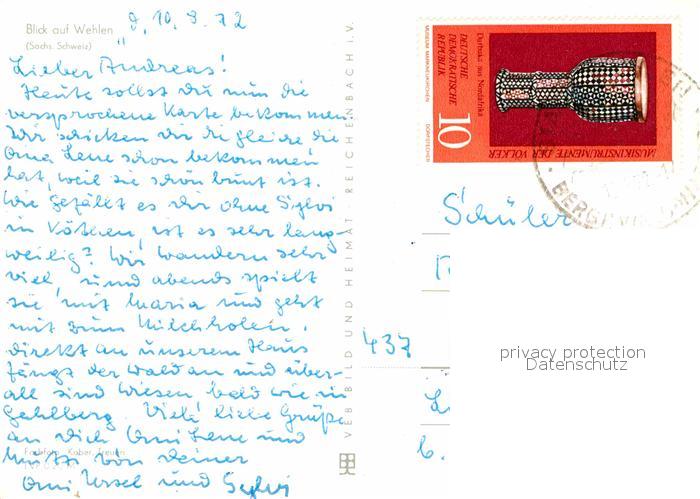 Blick auf Wehlen
(Sächs. Schweiz)
d. 10. 8. 72
Lieber Andreas!
Heute sollst du nun die
versprochene Karte bekommen.
Wir schicken dir die gleiche die
Oma Lene schon bekommen
hat, weil sie schön bunt ist.
Wie gefällt es dir ohne Sylvi
in Köthen, ist es sehr lang-
weilig? Wir wandern sehr
viel, und abends spielt
sie mit Maria und geht
mit zum Milchholen.
direkt an unserem Haus
fängt der Wald an und über-
all sind Wiesen, bald wie in
Gehlberg. Viele liebe Grüße
an dich Omi Lene und
Mutti von deiner
Omi Ursel und Sylvi
VEB BILD UND HEIMAT REICHENBACH i. V.
MUSIKINSTRUMENTE DER VÖLKER
Darbuka aus Nordafrika
DEUTSCHE
DEMOKRATISCHE
REPUBLIK
10
MUSEUM MARKNEUKIRCHEN
Schüler
437
privacy protection
Datenschutz